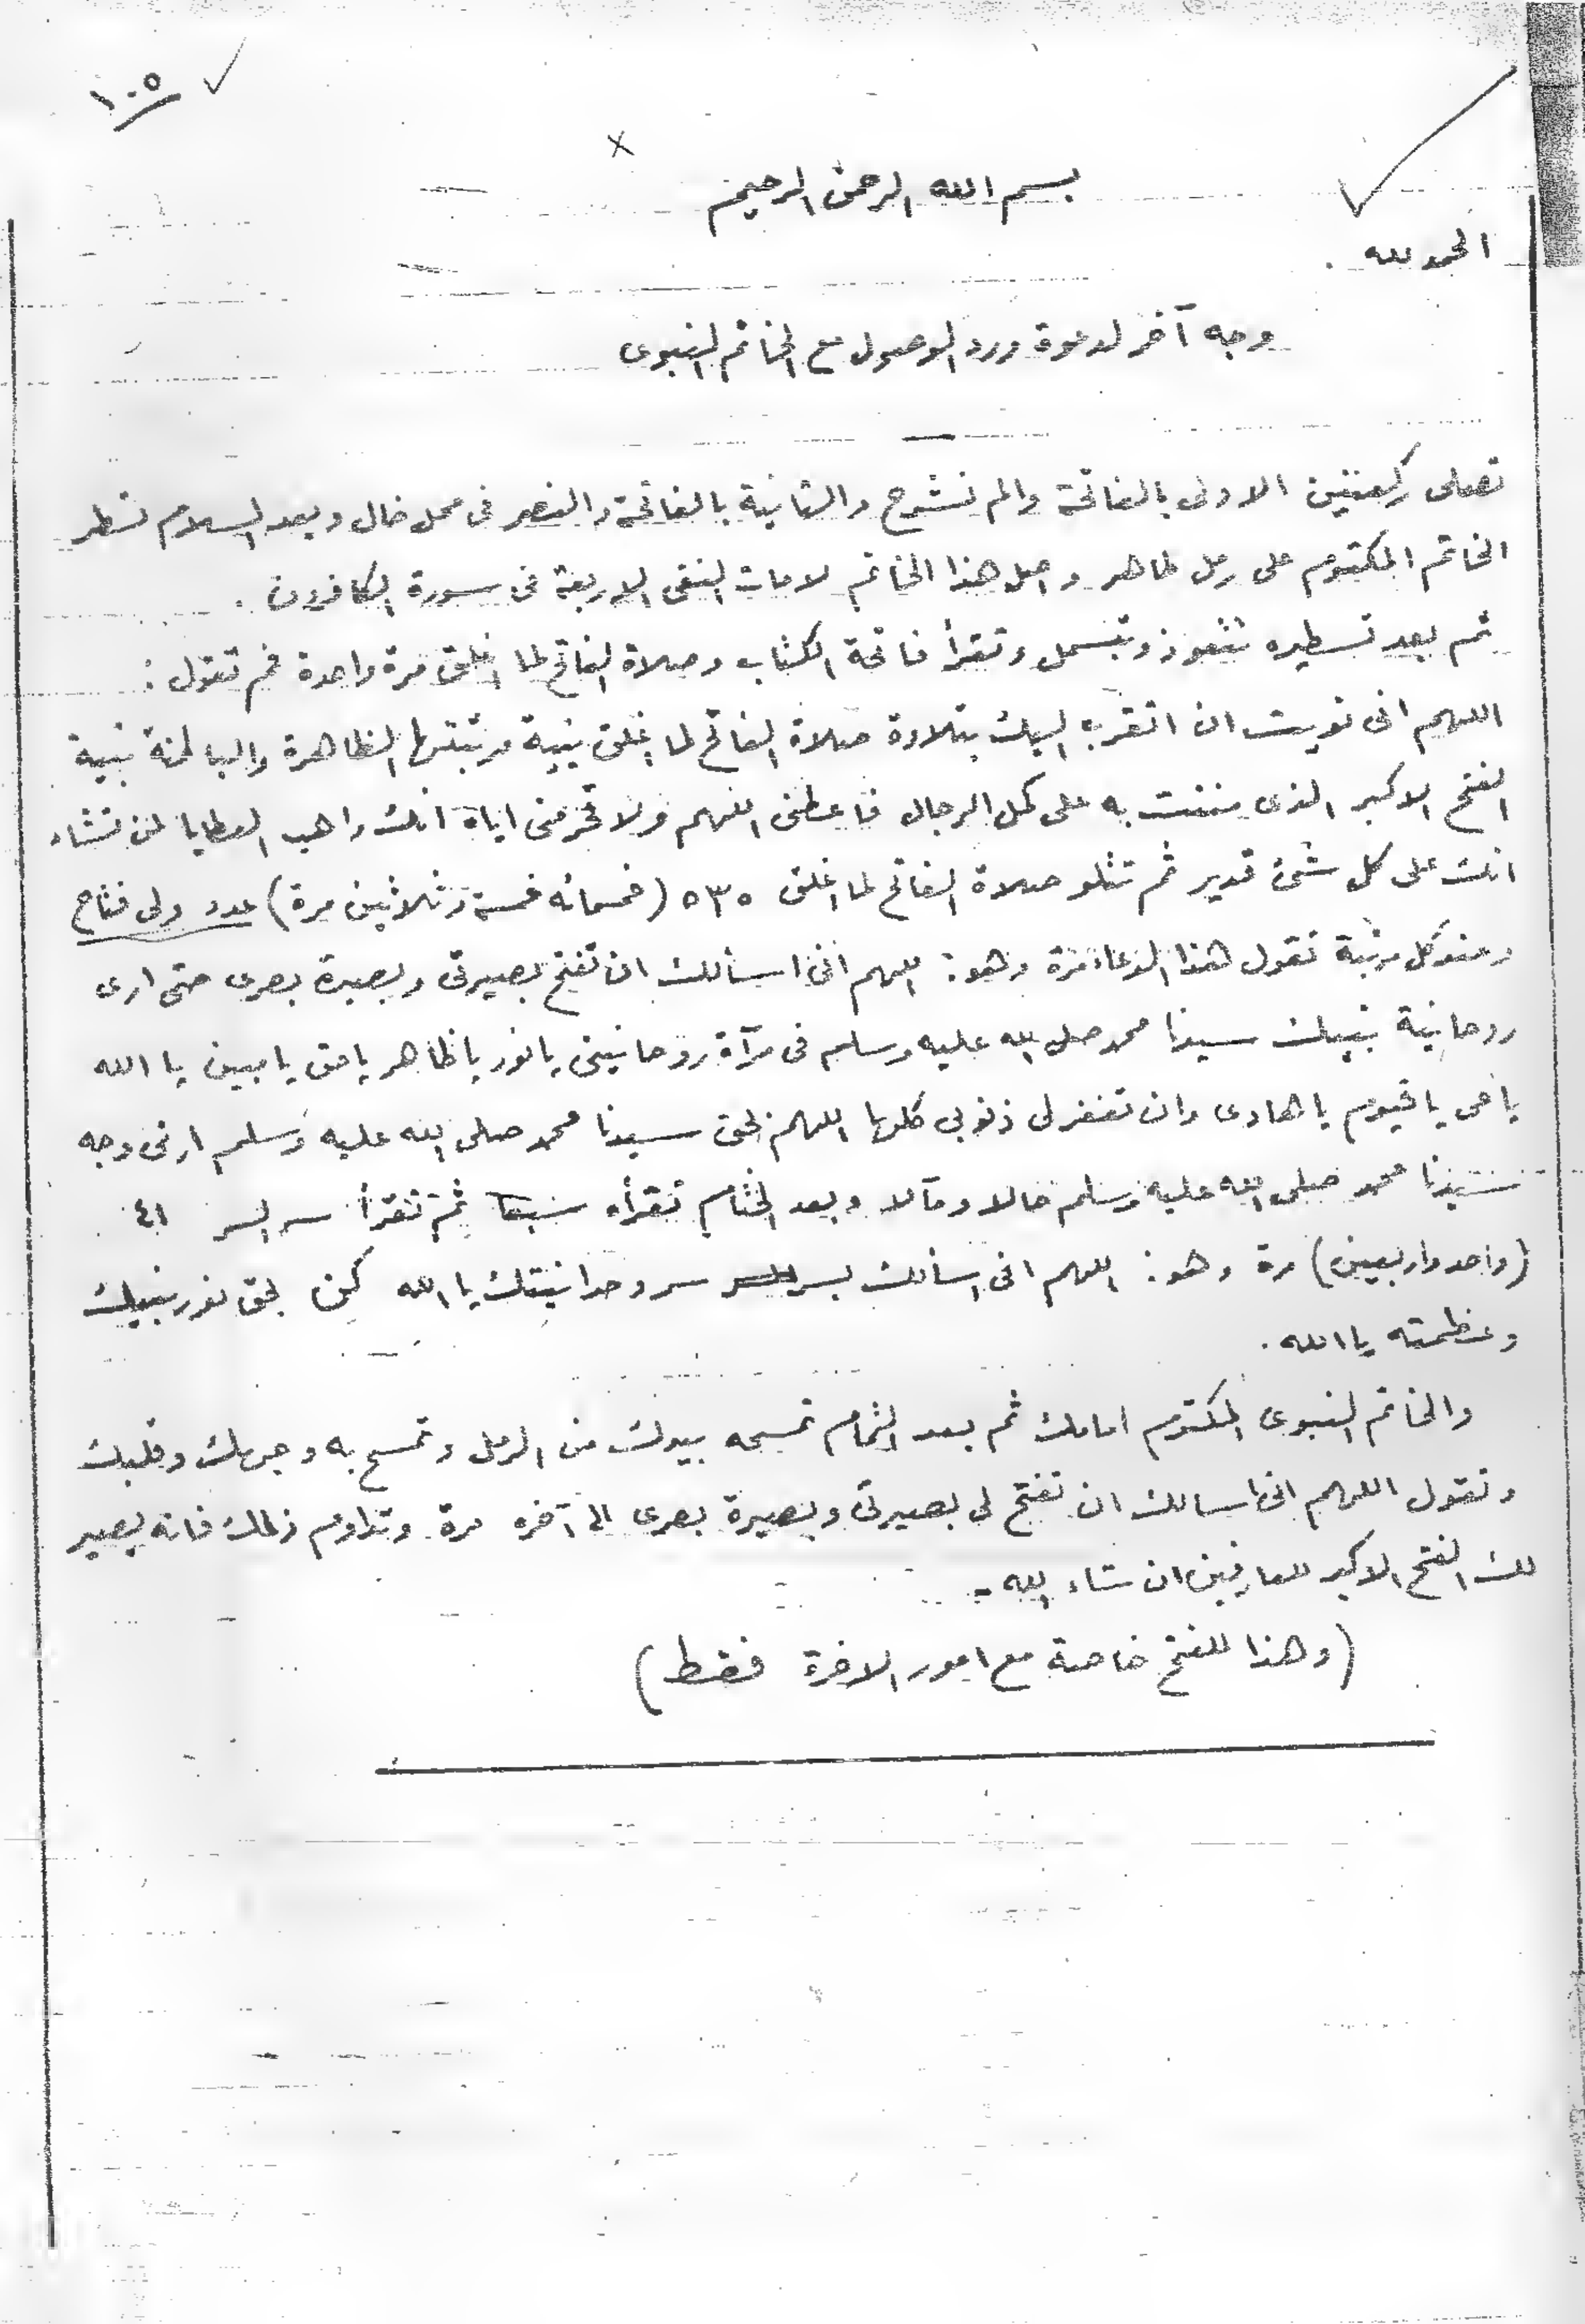 ١٠٥
بسم الله الرحمن الرحيم
الحمد لله .
وجه آخر لدعوة ورد الوصول مع الخاتم النبوى
تصلى ركعتين الاولى بالفاتحة والم نشرح والثانية بالفاتحة والنصر فى محل خال وبعد السلام تسطر
الخاتم المكتوم على رمل طاهر واصل هذا الخاتم لامات النفى الاربعة فى سورة الكافرون .
ثم بعد تسطيره تتعوذ وتبسمل وتقرأ فاتحة الكتاب وصلاة الفاتح لما اغلق مرة واحدة ثم تقول :
اللهم انى نويت ان اتقرب اليك بتلاوة صلاة الفاتح لما اغلق بنية مرتبتها الظاهرة والباطنة بنية
الفتح الاكبر الذى مننت به على كمل الرجال فاعطنى اللهم ولا تحرمنى اياه انك واهب العطايا لمن تشاء
انك على كل شئ قدير ثم تتلو صلاة الفاتح لما اغلق ٥٣٥ (خمسمائه خمسة وثلاثين مرة) عدد ولى فتاح
وعند كل مرتبة تقول هذا الدعاء مرة وهو : اللهم انى اسألك ان تفتح بصيرتى وبصيرة بصرى حتى ارى
روحانية نبيك سيدنا محمد صلى الله عليه وسلم فى مرآة روحانيتى يا نور يا ظاهر يا حق يا مبين يا الله
يا حى يا قيوم يا هادى وان تغفر لى ذنوبى كلها اللهم بحق سيدنا محمد صلى الله عليه وسلم ارنى وجه
سيدنا محمد صلى الله عليه وسلم حالا ومآلا وبعد الختام تقرأه سبعا ثم تقرأ سر السر ٤١
(واحد واربعين) مرة وهو : اللهم انى اسألك بسر سر وحدانيتك يا الله بحق نور نبيك
وعظمته يا الله .
والخاتم النبوى المكتوم امامك ثم بعد التمام تمسحه بيدك من الرمل وتمسح به وجهك وقلبك
وتقول اللهم انى اسالك ان تفتح لى بصيرتى وبصيرة بصرى الى آخره مرة وتداوم ذلك فانه يصير
لك الفتح الاكبر للعارفين ان شاء الله -
(وهذا للفتح خاصة مع امور الاخرة فقط)